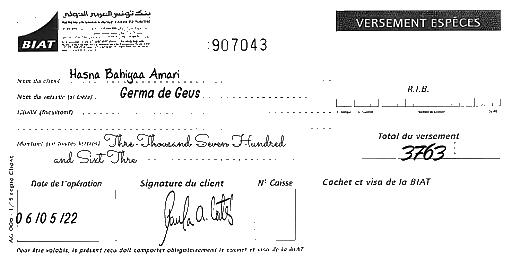 بنك تونس العربي الدولي
BIAT
VERSEMENT ESPÈCES
:907043
Nom du client Hasna Bahiyaa Amari
Nom du remettant (si tiers) Germa de Geus
R.I.B.
Libellé (facultatif)
Montant (en toutes lettres) Thre Thousand Seven Hundred
and Sixt Thre
Total du versement
3763
Date de l'opération
Signature du client
N° Caisse
Cachet et visa de la BIAT
06/05/22
Pour être valable, le présent reçu doit comporter obligatoirement le cachet et visa de la BIAT